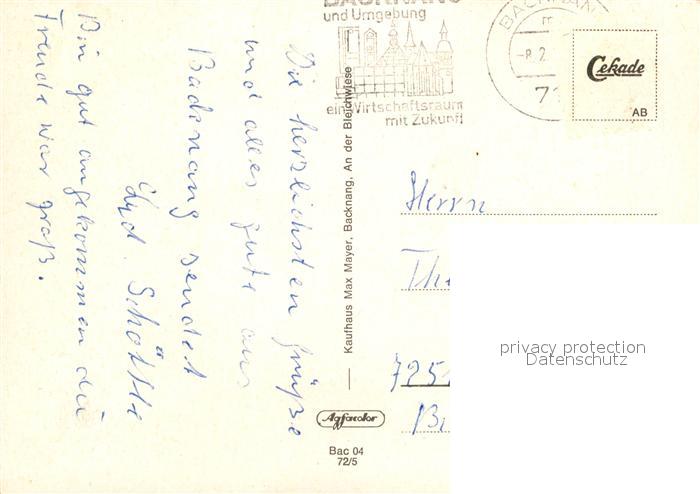 BACKNANG
und Umgebung
ein Wirtschaftsraum
mit Zukunft
BACKNAN
m
-8.2
71
Cekade
AB
Die herzlichsten Grüße
und alles gute aus
Backnang sendet
Lyd. Schöttle
Bin gut angekommen die
Freude war groß.
Kaufhaus Max Mayer, Backnang, An der Bleichwiese
Agfacolor
Bac 04
72/5
Herrn
Th
725
privacy protection
Datenschutz